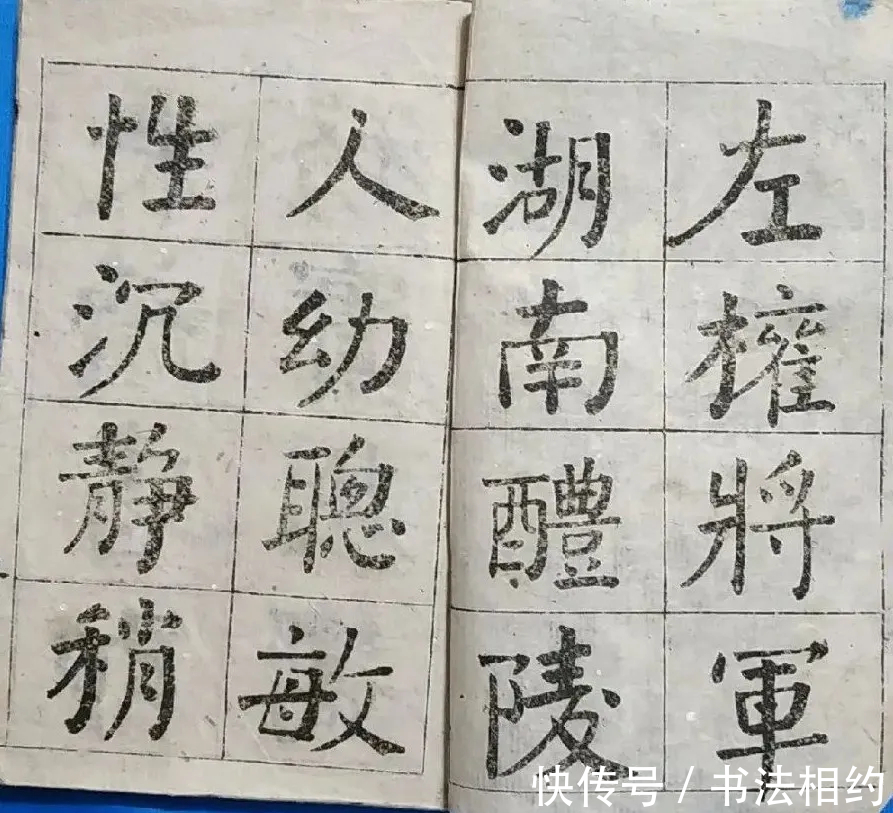 左權將軍
湖南醴陵
人幼聰敏
性沉静稍
快传号 / 书法相约